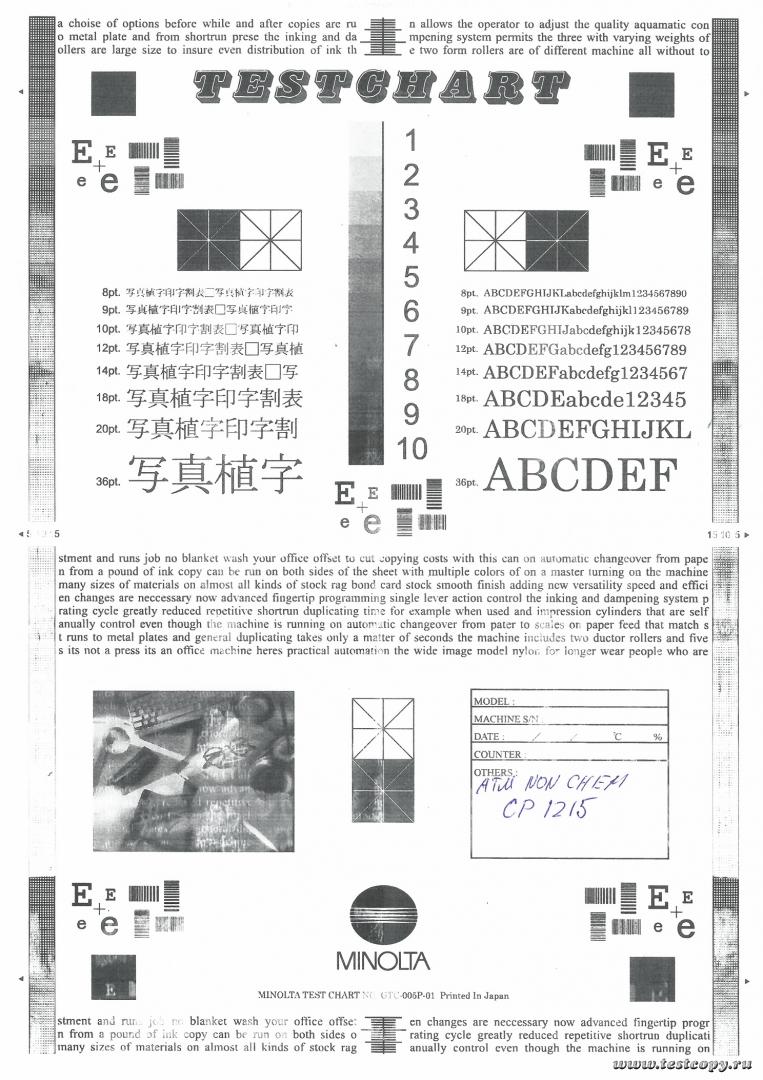 a choise of options before while and after copies are ru
o metal plate and from shortrun prese the inking and da
ollers are large size to insure even distribution of ink th
n allows the operator to adjust the quality aquamatic con
mpening system permits the three with varying weights of
e two form rollers are of different machine all without to
TESTCHART
E E
e e
E E
e e
1
2
3
4
5
6
7
8
9
10
8pt. 写真植字印字割表□写真植字印字割表
9pt. 写真植字印字割表□写真植字印字
10pt. 写真植字印字割表□写真植字印
12pt. 写真植字印字割表□写真植
14pt. 写真植字印字割表□写
18pt. 写真植字印字割表
20pt. 写真植字印字割
36pt. 写真植字
8pt. ABCDEFGHIJKLabcdefghijklm1234567890
9pt. ABCDEFGHIJKabcdefghijkl123456789
10pt. ABCDEFGHIJabcdefghijk12345678
12pt. ABCDEFGabcdefg123456789
14pt. ABCDEFabcdefg1234567
18pt. ABCDEabcde12345
20pt. ABCDEFGHIJKL
36pt. ABCDEF
E E
e e
5 10 15
15 10 5
stment and runs job no blanket wash your office offset to cut copying costs with this can on automatic changeover from pape
n from a pound of ink copy can be run on both sides of the sheet with multiple colors of on a master turning on the machine
many sizes of materials on almost all kinds of stock rag bond card stock smooth finish adding new versatility speed and effici
en changes are neccessary now advanced fingertip programming single lever action control the inking and dampening system p
rating cycle greatly reduced repetitive shortrun duplicating time for example when used and impression cylinders that are self
anually control even though the machine is running on automatic changeover from pater to scales on paper feed that match s
t runs to metal plates and general duplicating takes only a matter of seconds the machine includes two ductor rollers and five
s its not a press its an office machine heres practical automation the wide image model nylon for longer wear people who are
MODEL :
MACHINE S/N
DATE : / / °C %
COUNTER :
OTHERS :
ATM NON CHEM
CP 1215
E E
e e
E E
e e
E
MINOLTA
MINOLTA TEST CHART NO GTC-005P-01 Printed In Japan
stment and runs job no blanket wash your office offset
n from a pound of ink copy can be run on both sides o
many sizes of materials on almost all kinds of stock rag
en changes are neccessary now advanced fingertip progr
rating cycle greatly reduced repetitive shortrun duplicati
anually control even though the machine is running on
www.testcopy.ru